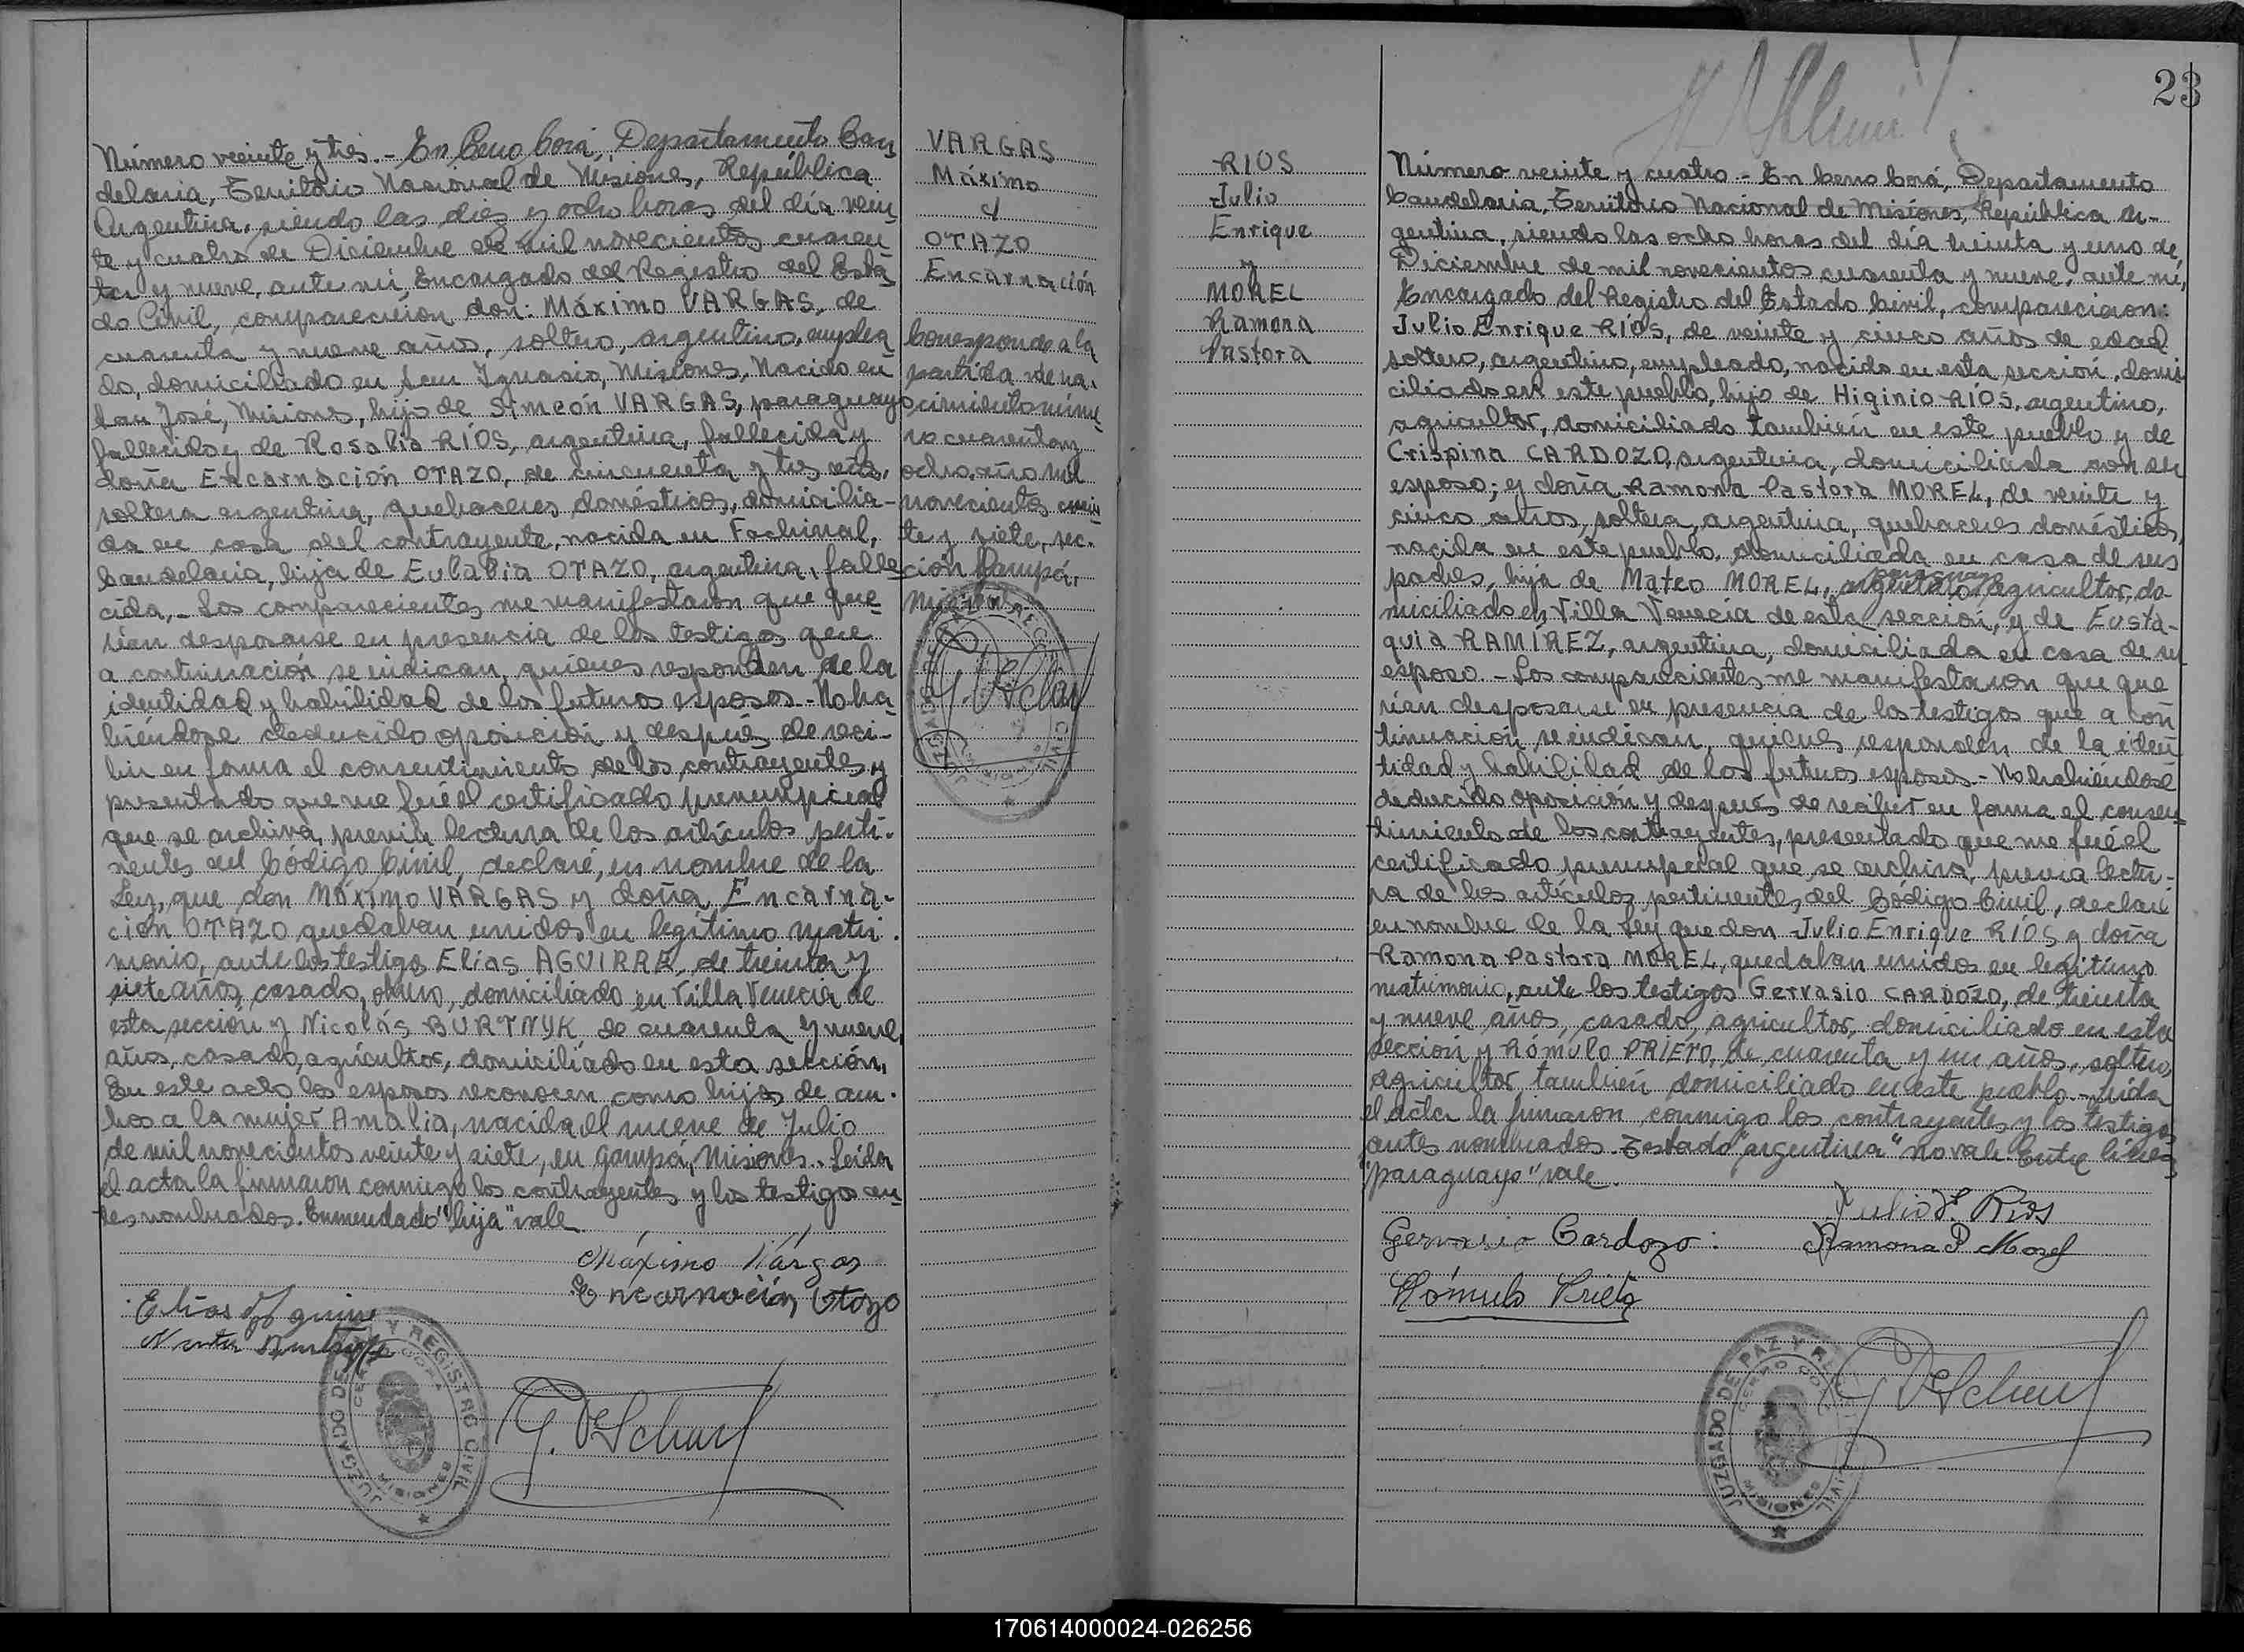 Número veinte y tres.- En Cerro Corá, Departamento Can
delaria, Territorio Nacional de Misiones, República
Argentina, siendo las diez y ocho horas del día vein
te y cuatro de Diciembre de mil novecientos cuaren
ta y nueve, ante mí, Encargado del Registro del Esta
do Civil, comparecieron don: Máximo VARGAS, de
cuarenta y nueve años, soltero, argentino, emplea
do, domiciliado en San Ignacio, Misiones, Nacido en
San José, Misiones, hijo de Simeón VARGAS, paraguayo
fallecido y de Rosalia RÍOS, argentina, fallecida y
doña Encarnación OTAZO, de cincuenta y tres años,
soltera argentina, quehaceres domésticos, domicilia-
da en casa del contrayente, nacida en Fachinal,
Candelaria, hija de Eulalia OTAZO, argentina, falle
cida.- Los comparecientes me manifestaron que que
rían desposarse en presencia de los testigos que
a continuación se indican, quienes responden de la
identidad y habilidad de los futuros esposos.- No ha
biéndose deducido oposición y después de reci-
bir en forma el consentimiento de los contrayentes, y
presentado que me fué el certificado prenupcial
que se archiva, previa lectura de los artículos perti-
nentes del Código Civil, declaré, en nombre de la
Ley, que don Máximo VARGAS y doña Encarna-
ción OTAZO quedaban unidos en legítimo matri-
monio, ante los testigos Elías AGUIRRE, de treinta y
siete años, casado, obrero, domiciliado en Villa Venecia de
esta sección y Nicolás BURTNYK de cuarenta y nueve
años, casado, agricultor, domiciliado en esta sección.
En este acto los esposos reconocen como hija de am-
bos a la mujer Amalia, nacida el nueve de Julio
de mil novecientos veinte y siete, en Garupá, Misiones. Leída
el acta la firmaron conmigo los contrayentes y los testigos an
tes nombrados. Enmendado "hija" vale
Máximo Vargas
Encarnación Otazo
Elías Aguirre
JUZGADO DE PAZ Y REGISTRO CIVIL
CERRO CORA
MISIONES
VARGAS
Máximo
y
OTAZO
Encarnación
Corresponde a la
partida de na-
cimiento núme
ro cuarenta y
ocho, año mil
novecientos vein
te y siete, sec-
ción Garupá,
Misiones
23
RIOS
Julio
Enrique
y
MOREL
Ramona
Pastora
Número veinte y cuatro.- En Cerro Corá, Departamento
Candelaria, Territorio Nacional de Misiones, República Ar-
gentina, siendo las ocho horas del día treinta y uno de
Diciembre de mil novecientos cuarenta y nueve, ante mí,
Encargado del Registro del Estado Civil, comparecieron:
Julio Enrique RÍOS, de veinte y cinco años de edad
soltero, argentino, empleado, nacido en esta sección, domi
ciliado en este pueblo, hijo de Higinio RÍOS, argentino,
agricultor, domiciliado también en este pueblo y de
Crispina CARDOZO, argentina, domiciliada con su
esposo; y doña Ramona Pastora MOREL, de veinte y
cinco años, soltera, argentina, quehaceres domésticos,
nacida en este pueblo, domiciliada en casa de sus
paraguayo
padres, hija de Mateo MOREL, argentino agricultor, do-
miciliado en Villa Venecia de esta sección, y de Eusta-
quia RAMÍREZ, argentina, domiciliada en casa de su
esposo.- Los comparecientes me manifestaron que que
rían desposarse en presencia de los testigos que a con
tinuación se indican, quienes responden de la iden
tidad y habilidad de los futuros esposos.- No habiéndose
deducido oposición y después de recibir en forma el consen
timiento de los contrayentes, presentado que me fué el
certificado prenupcial que se archiva, previa lectu-
ra de los artículos pertinentes del Código Civil, declaré
en nombre de la Ley que don Julio Enrique RÍOS y doña
Ramona Pastora MOREL, quedaban unidos en legítimo
matrimonio, ante los testigos Gervasio CARDOZO, de treinta
y nueve años, casado, agricultor, domiciliado en esta
sección y Rómulo PRIETO, de cuarenta y un años, soltero,
agricultor, también domiciliado en este pueblo.- Leída
el acta la firmaron conmigo los contrayentes y los testigos
antes nombrados. Testado "argentina" no vale. Entre líneas
"paraguayo" vale.
Julio E. Ríos
Gervasio Cardozo.
Ramona P. Morel
Rómulo Prieto
JUZGADO DE PAZ Y REGISTRO CIVIL
CERRO CORA
MISIONES
170614000024-026256